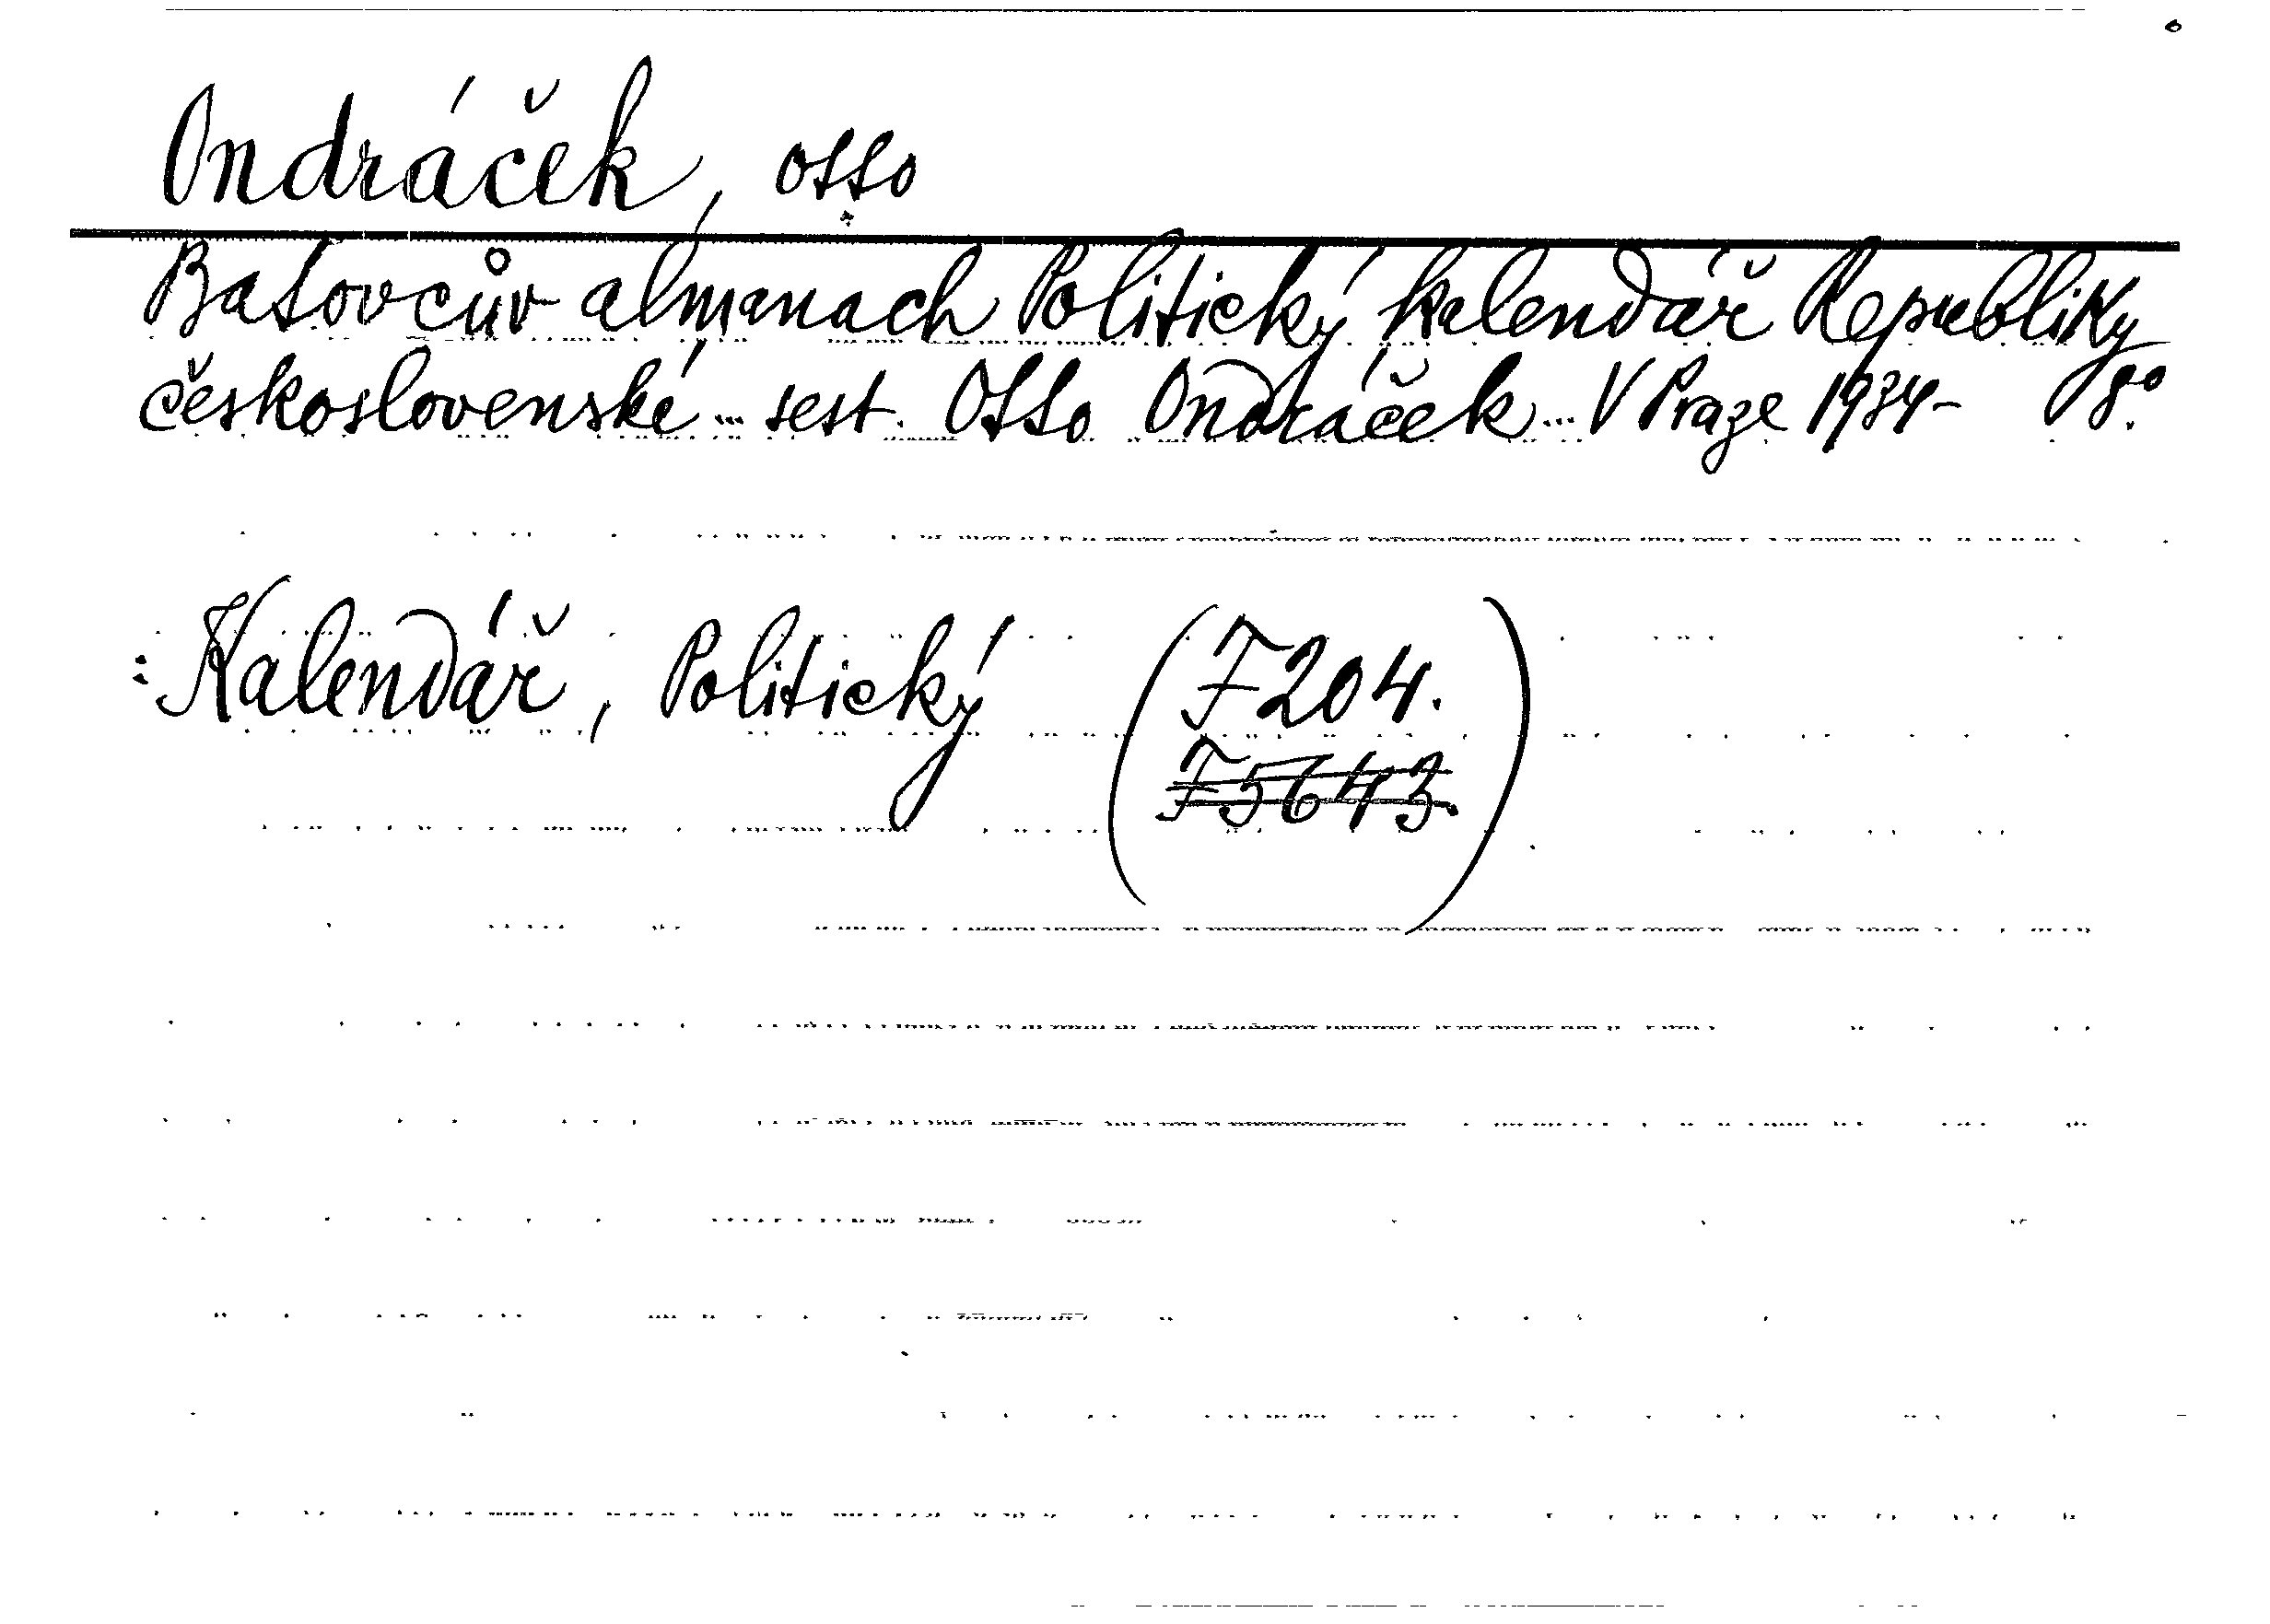 Ondráček, Otto
Baťovcův almanach Politický kalendář Republiky
československé ... sest. Otto Ondráček ... V Praze 1934- 8°.
: Kalendář, Politický (F 204.
F 5643.)